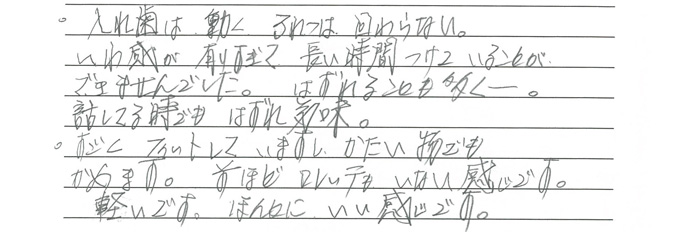 。入れ歯は 動く ろれつは 回わらない。
いわ感が 有りすぎて 長い時間 つけている事が
できませんでした。 はずれることも多く―。
話してる時でも はずれ気味。
。すごく フィットして いますし かたい物でも
かめます。 さほど いない感じです。
軽いです。 ほんとに いい感じです。